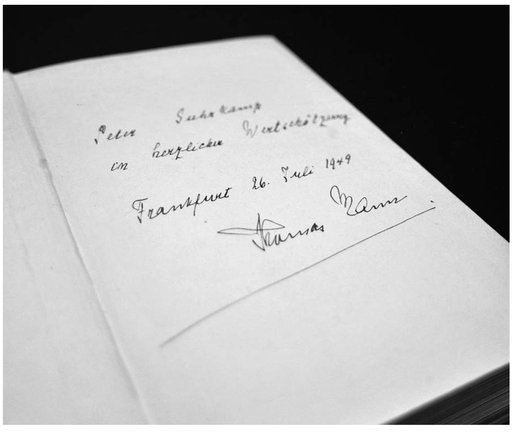 Peter Suhrkamp
in herzlicher Wertschätzung
Frankfurt 26. Juli 1949
Thomas Mann